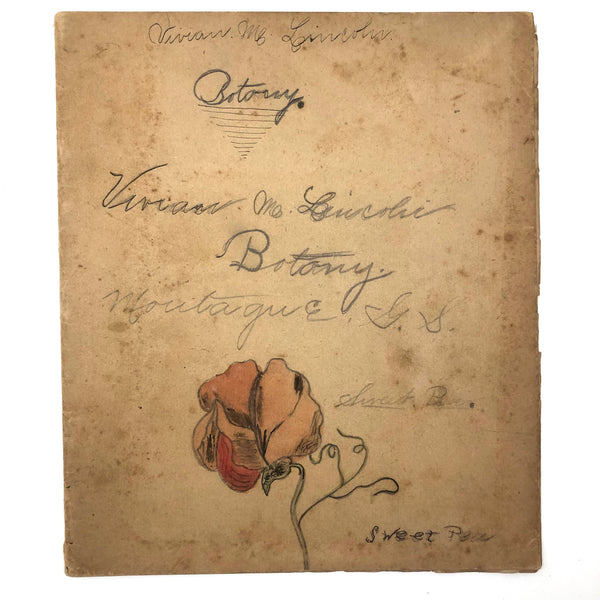 Vivian. M. Lincoln.
Botony.
Vivian M. Lincoln
Botony.
Montague. G. S.
Sweet Pea.
Sweet Pea